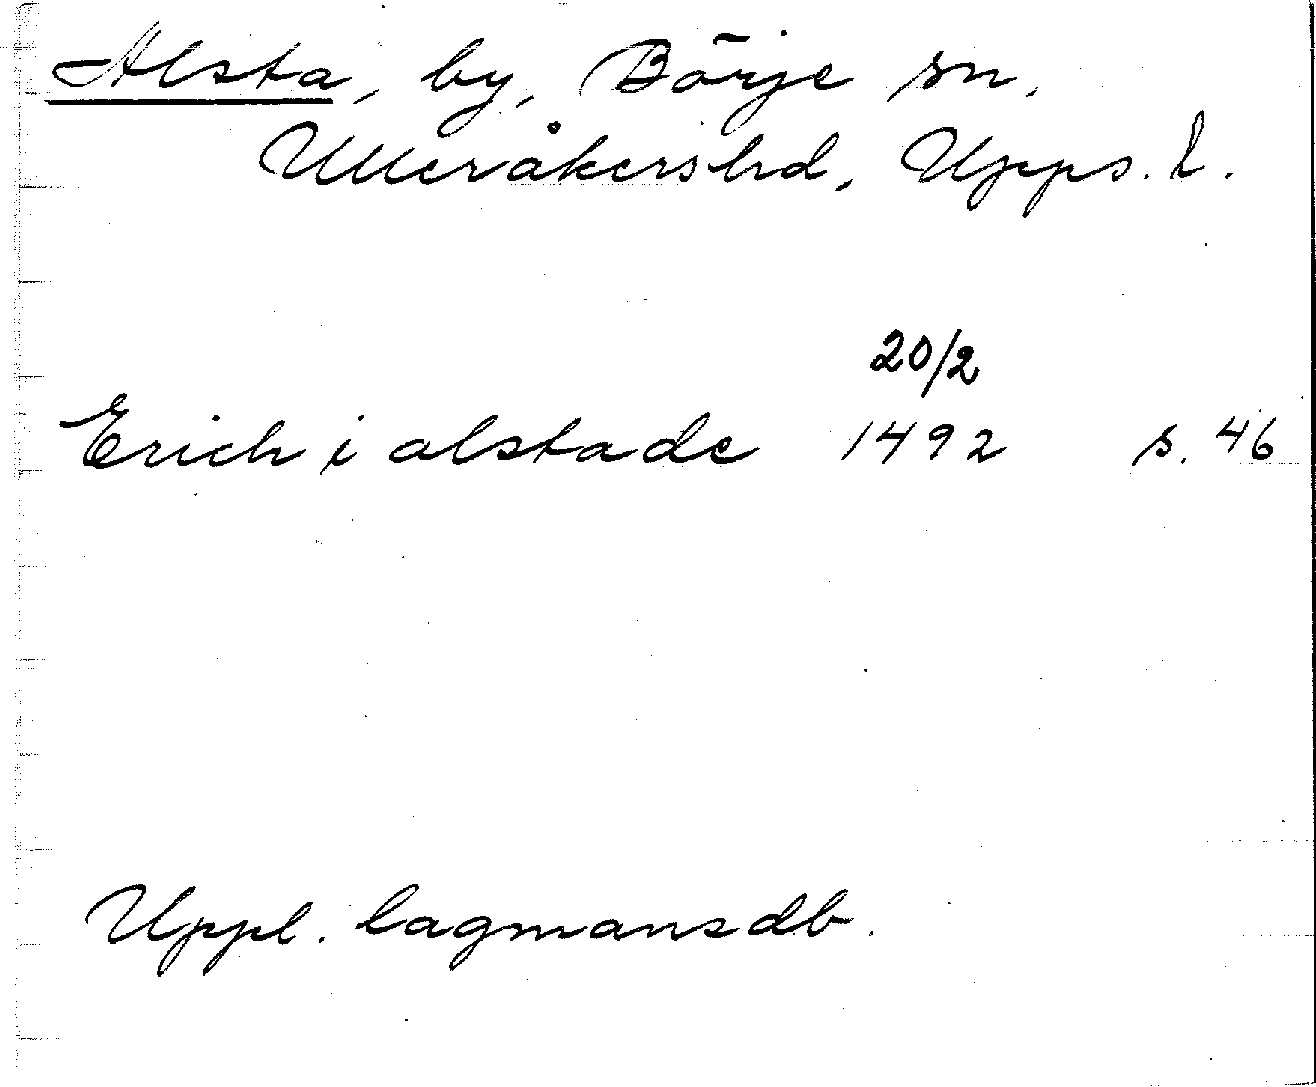 Alsta, by, Börje sn,
Ulleråkers hd, Upps. l.
20/2
Erich i alstade 1492 s. 46
Uppl. lagmansdb.